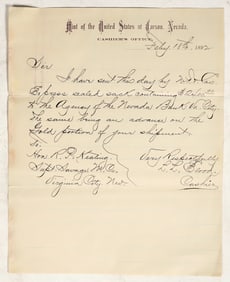 Mint of the United States at Carson, Nevada.
CASHIER'S OFFICE,
Feby 18th, 1882
Sir
I have sent this day by
Express sealed sack containing
to the Agency of the Nevada Bank, Va. City
The same being an advance on the
Gold portion of your shipment.
To:
Hon R. P. Keating Very Respectfully
Supt Savage M. Co.
Virginia City Nev Cashier